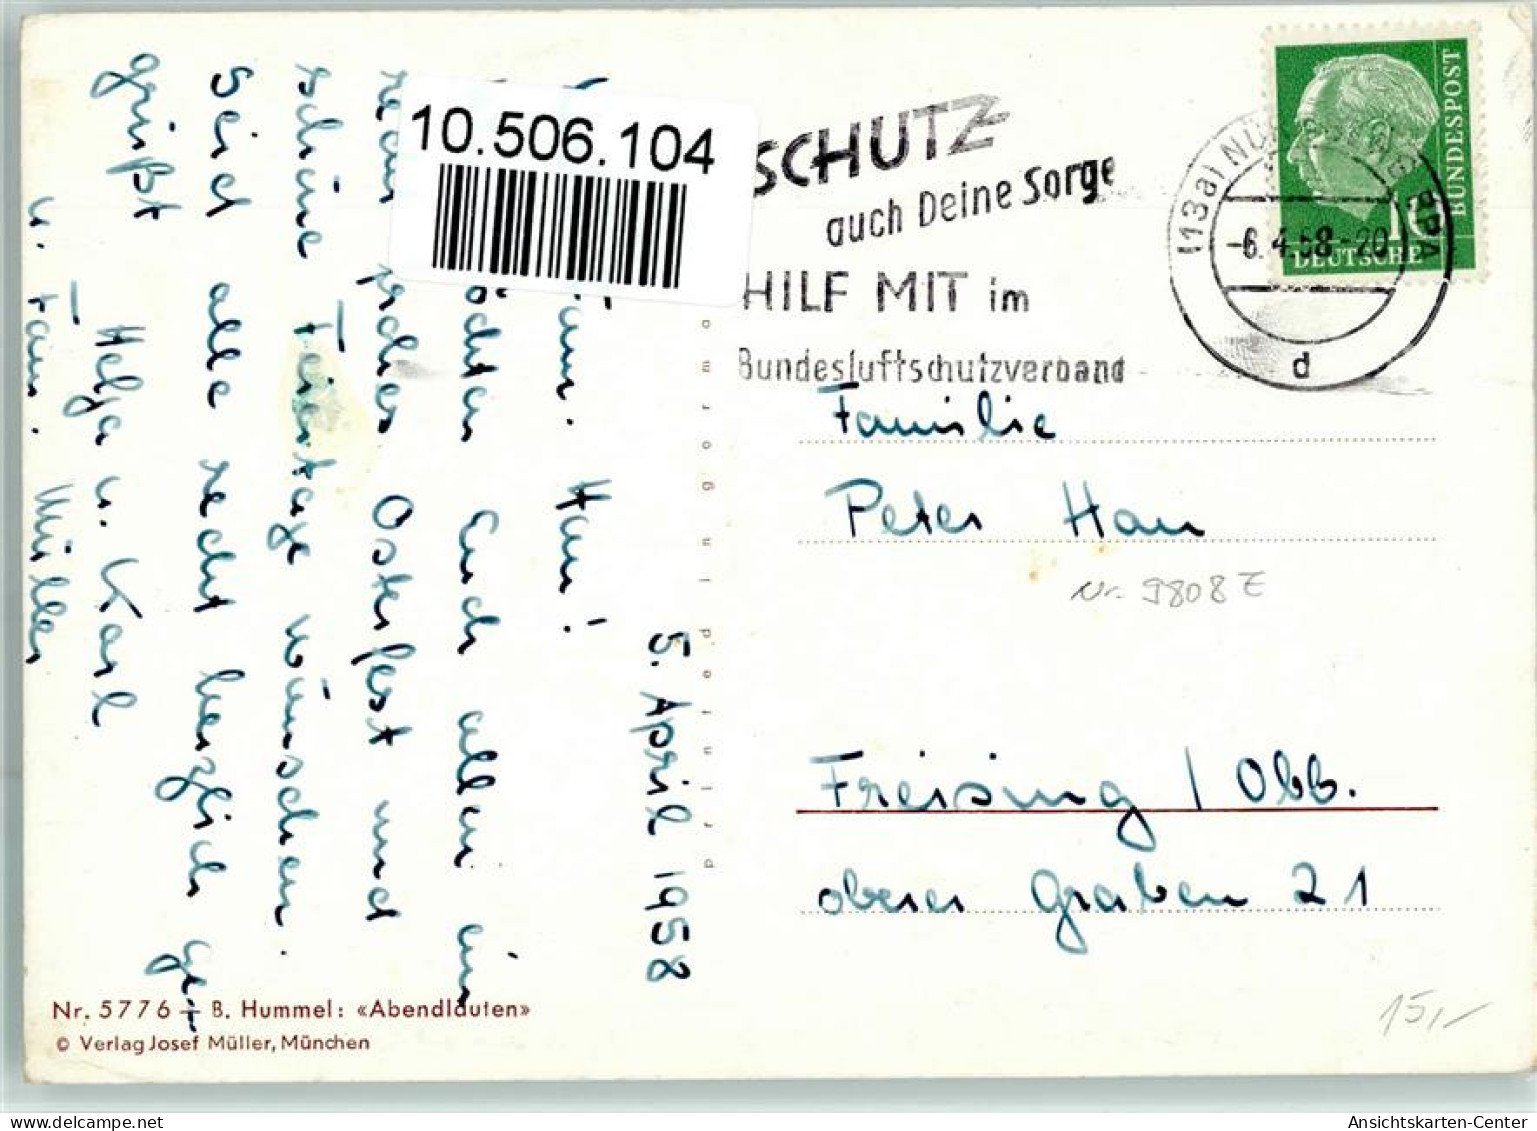 10.506.104
SCHUTZ
auch Deine Sorge
HILF MIT im
Bundesluftschutzverband
(13a) NÜRNBERG BPA
-6.4.58-20
d
DEUTSCHE
BUNDESPOST
10
Familie
Peter Hau
Nr. 9808 E
Freising / Obb.
oberer Graben 21
15,-
printed in germa
5. April 1958
Fam. Hau!
möchten Euch allen ein
recht frohes Osterfest und
schöne Feiertage wünschen.
Seid alle recht herzlich ge-
grüßt
Helga u. Karl
u. Fam. Müller
Nr. 5776 - B. Hummel: «Abendläuten»
© Verlag Josef Müller, München
delcampe.net
Ansichtskarten-Center